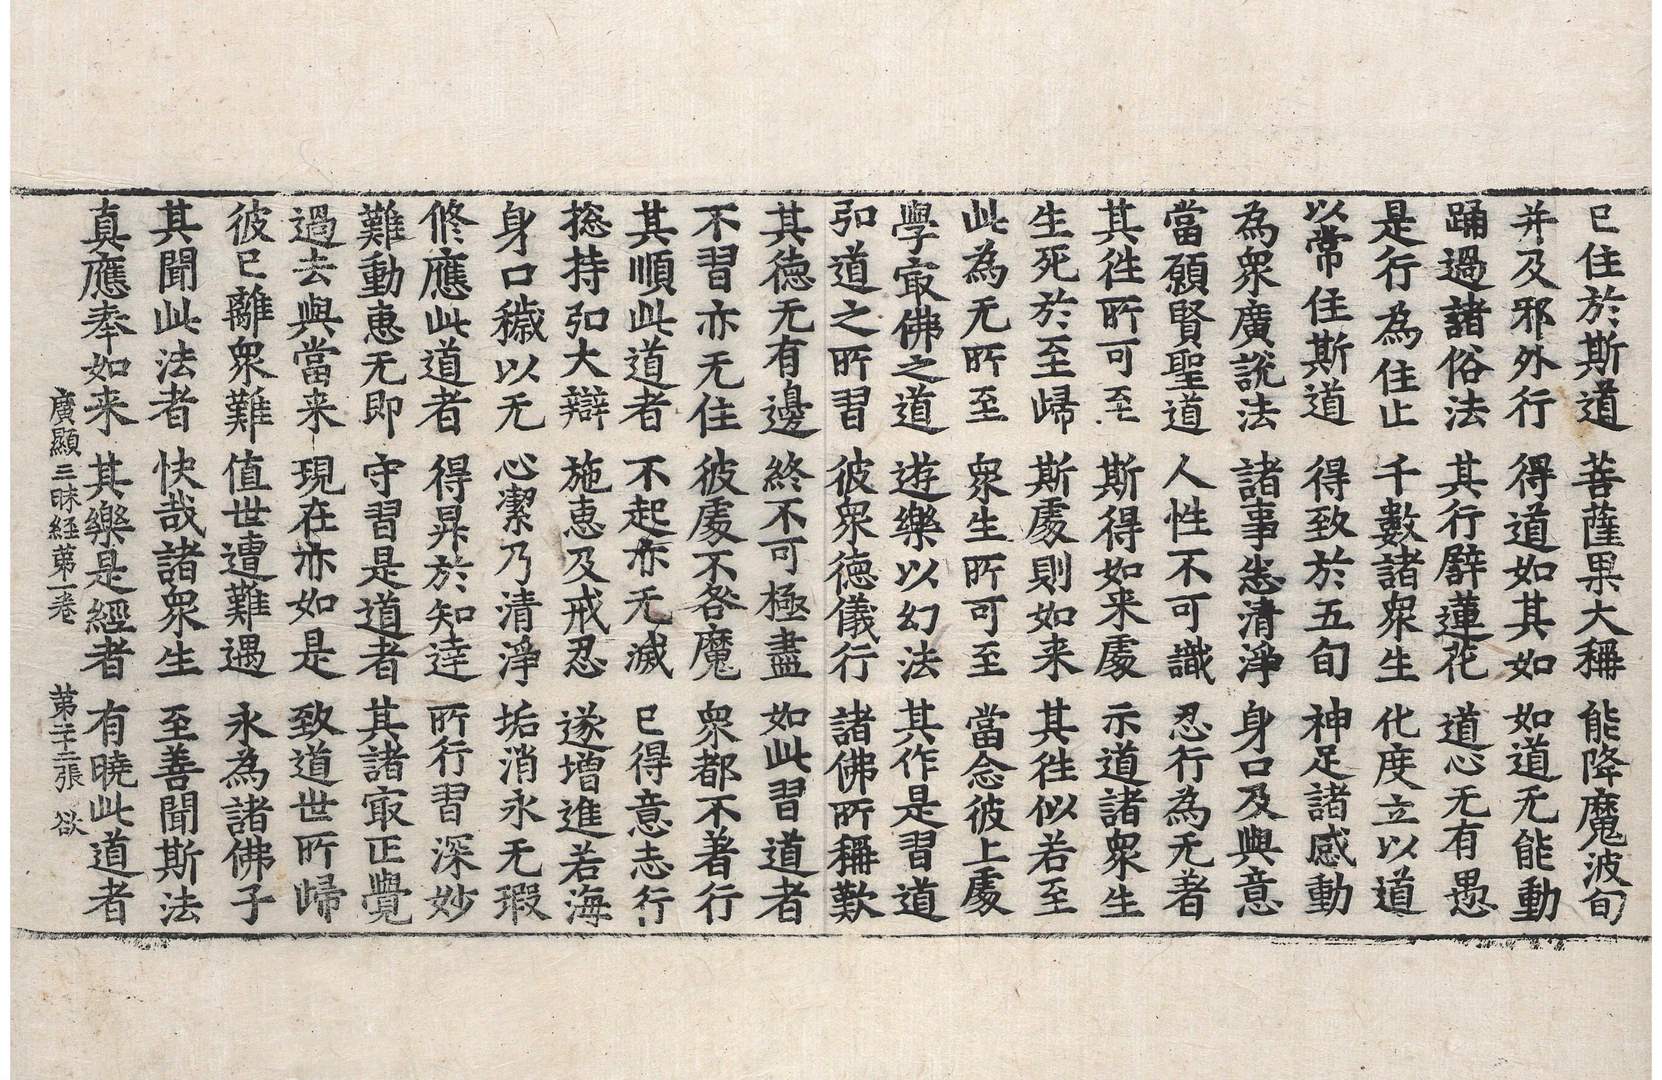 已住於斯道 菩薩果大稱 能降魔波旬
并及邪外行 得道如其如 如道无能動
踊過諸俗法 其行譬蓮花 道心无有愚
是行為住止 千數諸衆生 化度立以道
以常住斯道 得致於五旬 神足諸感動
為衆廣說法 諸事悉清淨 身口及與意
當願賢聖道 人性不可識 忍行為无著
其徃所可至 斯得如来處 示道諸衆生
生死於至歸 斯處則如来 其徃似若至
此為无所至 衆生所可至 當念彼上處
學㝡佛之道 遊樂以幻法 其作是習道
弘道之所習 彼衆德儀行 諸佛所稱歎
其德无有邊 終不可極盡 如此習道者
不習亦无住 彼處不各魔 衆都不著行
其順此道者 不起亦无滅 已得意志行
捴持弘大辯 施惠及戒忍 遂增進若海
身口穢以无 心潔乃清淨 垢消永无瑕
修應此道者 得昇於知逹 所行習深妙
難動惠无即 守習是道者 其諸㝡正覺
過去與當来 現在亦如是 致道世所歸
彼已離衆難 值世遭難遇 永為諸佛子
其聞此法者 快哉諸衆生 至善聞斯法
真應奉如来 其樂是經者 有曉此道者
廣顯三昧経苐一卷 苐二十二張 欲